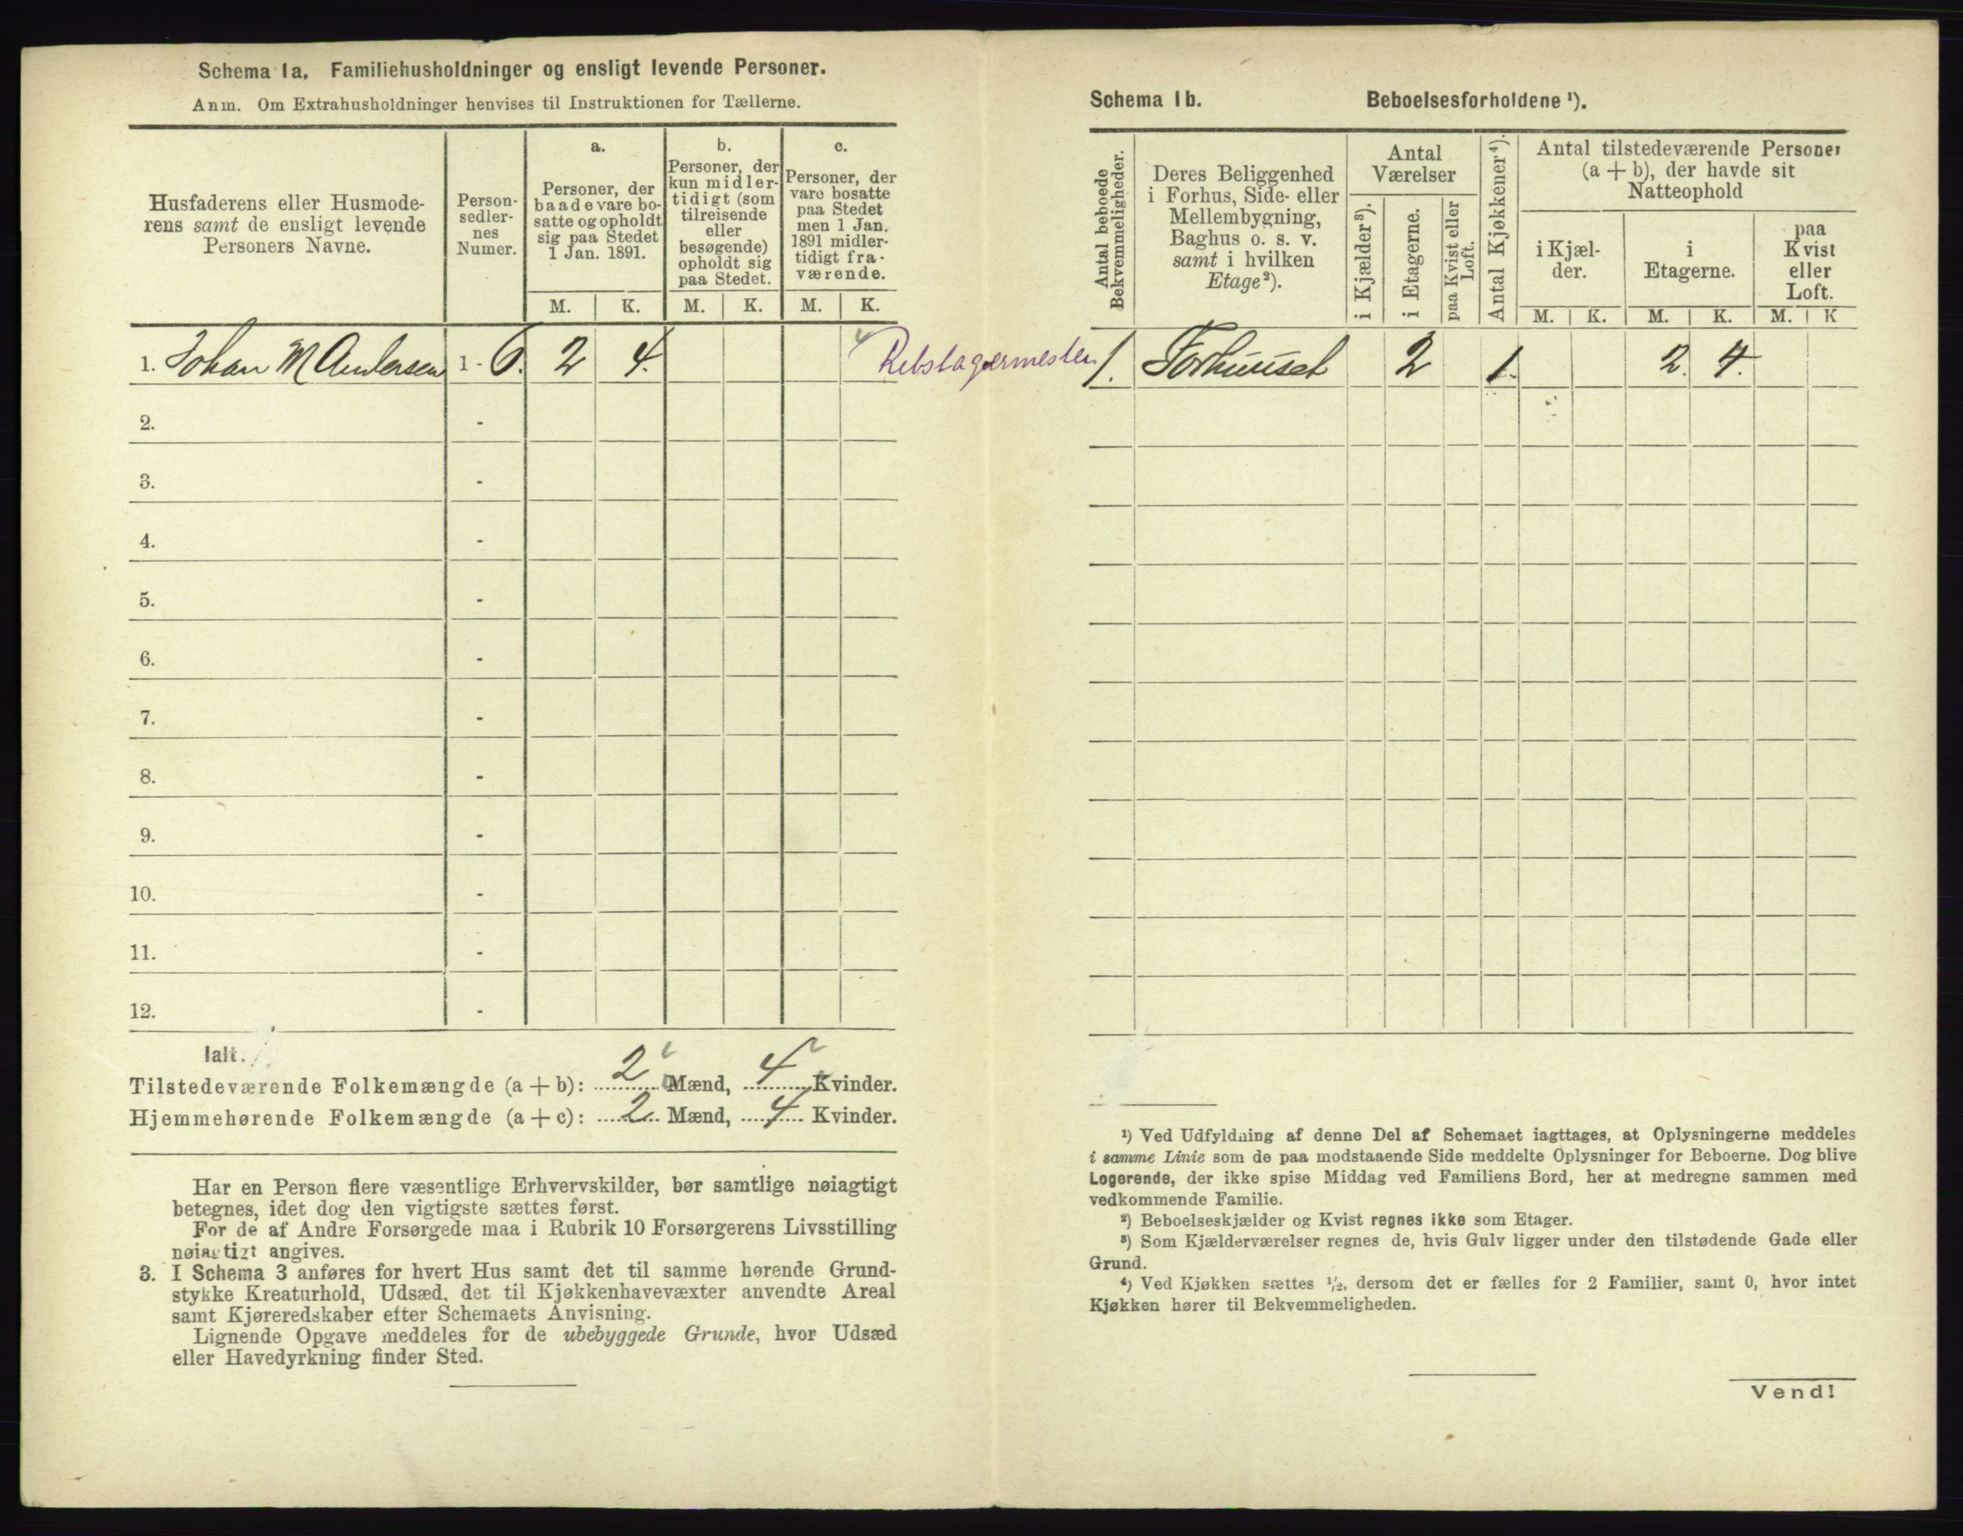 Schema 1a. Familiehusholdninger og ensligt levende Personer.
Anm. Om Extrahusholdninger henvises til Instruktionen for Tællerne.
Husfaderens eller Husmode-
rens samt de ensligt levende
Personers Navne.
Person-
sedler-
nes
Numer.
a.
Personer, der
baade vare bo-
satte og opholdt
sig paa Stedet
1 Jan. 1891.
b.
Personer, der
kun midler-
tidigt (som
tilreisende
eller
besøgende)
opholdt sig
paa Stedet.
c.
Personer, der
vare bosatte
paa Stedet
men 1 Jan.
1891 midler-
tidigt fra-
værende.
M. K. M. K. M. K.
1. Johan M Andersen 1 - 6. 2 4. Rebslagermester
2. -
3. -
4. -
5. -
6. -
7. -
8. -
9. -
10. -
11. -
12. -
Ialt.
Tilstedeværende Folkemængde (a + b): 2 Mænd, 4 Kvinder.
Hjemmehørende Folkemængde (a + c): 2 Mænd, 4 Kvinder.
Har en Person flere væsentlige Erhvervskilder, bør samtlige nøiagtigt
betegnes, idet dog den vigtigste sættes først.
For de af Andre Forsørgede maa i Rubrik 10 Forsørgerens Livsstilling
nøiagtigt angives.
3. I Schema 3 anføres for hvert Hus samt det til samme hørende Grund-
stykke Kreaturhold, Udsæd, det til Kjøkkenhavevæxter anvendte Areal
samt Kjøreredskaber efter Schemaets Anvisning.
Lignende Opgave meddeles for de ubebyggede Grunde, hvor Udsæd
eller Havedyrkning finder Sted.
Schema 1b. Beboelsesforholdene ¹).
Antal beboede
Bekvemmeligheder.
Deres Beliggenhed
i Forhus, Side- eller
Mellembygning,
Baghus o. s. v.
samt i hvilken
Etage²).
Antal
Værelser
i Kjælder³).
i Etagerne.
paa Kvist eller
Loft.
Antal Kjøkkener⁴).
Antal tilstedeværende Personer
(a + b), der havde sit
Natteophold
i Kjæl-
der.
i
Etagerne.
paa
Kvist
eller
Loft.
M. K. M. K. M. K
1. Forhuuset 2 1. 2. 4.
¹) Ved Udfyldning af denne Del af Schemaet iagttages, at Oplysningerne meddeles
i samme Linie som de paa modstaaende Side meddelte Oplysninger for Beboerne. Dog blive
Logerende, der ikke spise Middag ved Familiens Bord, her at medregne sammen med
vedkommende Familie.
²) Beboelseskjælder og Kvist regnes ikke som Etager.
³) Som Kjælderværelser regnes de, hvis Gulv ligger under den tilstødende Gade eller
Grund.
⁴) Ved Kjøkken sættes ½, dersom det er fælles for 2 Familier, samt 0, hvor intet
Kjøkken hører til Bekvemmeligheden.
Vend!